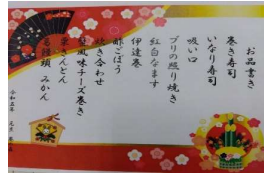 お品書き
巻き寿司
いなり寿司
吸い口
ブリの照り焼き
紅白なます
伊達巻
酢ごぼう
炊き合わせ
風味チーズ巻き
栗きんとん
みかん
令和五年 元旦